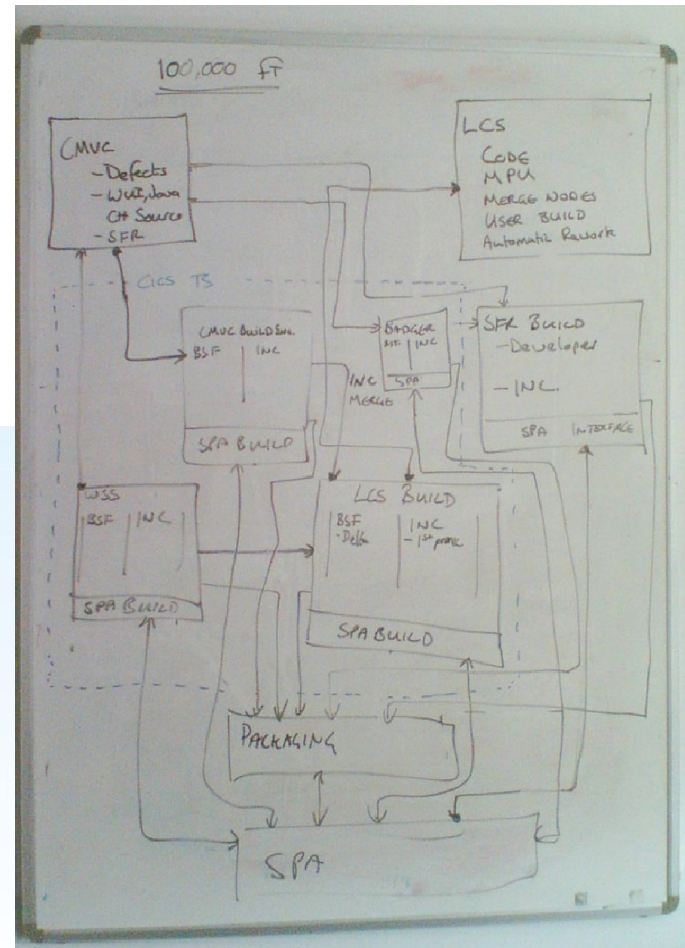 100,000 FT
CMVC
- Defects
- WUI, Java
C++ Source
- SFR
LCS
CODE
MPU
MERGE NODES
USER BUILD
Automatic Rework
CICS TS
CMVC BUILD
BSF INC
SPA BUILD
INC
MERGE
BADGER
INC
SPA
SFR BUILD
- Developer
- INC.
SPA INTERFACE
WSS
BSF INC
SPA BUILD
LCS BUILD
BSF INC
- Delta - 1st
SPA BUILD
PACKAGING
SPA